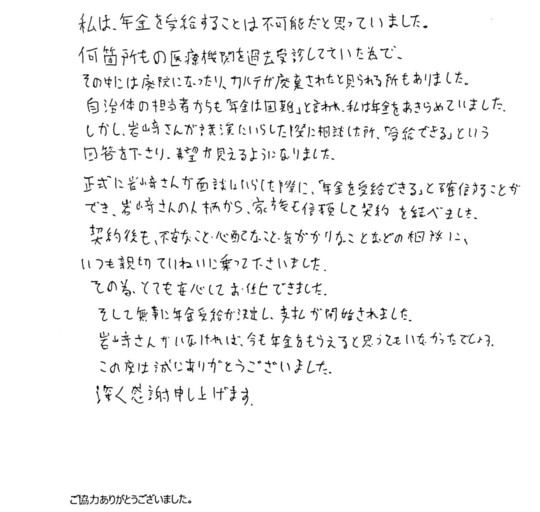 私は、年金を受給することは不可能だと思っていました。
何箇所もの医療機関を過去受診していた為で、
その中には廃院になったり、カルテが廃棄されたと見られる所もありました。
自治体の担当者からも「年金は困難」と言われ、私は年金をあきらめていました。
しかし、岩﨑さんが講演にいらした際に相談した所、「受給できる」という
回答を下さり、希望が見えるようになりました。
正式に岩﨑さんが面談にいらした際に、「年金を受給できる」と確信することが
でき、岩﨑さんの人柄から、家族も信頼して契約を結べました。
契約後も、不安なこと・心配なこと・気がかりなことなどの相談に、
いつも親切ていねいに乗って下さいました。
その為、とても安心してお任せできました。
そして無事に年金受給が決定し、支払が開始されました。
岩﨑さんがいなければ、今も年金をもらえると思ってもいなかったでしょう。
この度は誠にありがとうございました。
深く感謝申し上げます。
ご協力ありがとうございました。